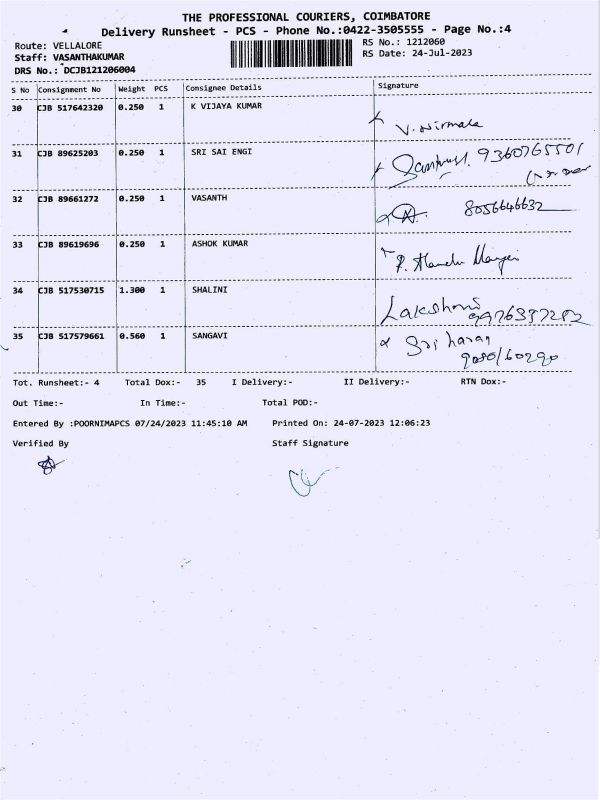 THE PROFESSIONAL COURIERS, COIMBATORE
Delivery Runsheet - PCS - Phone No.:0422-3505555 - Page No.:4
Route: VELLALORE RS No.: 1212060
Staff: VASANTHAKUMAR RS Date: 24-Jul-2023
DRS No.: DCJB121206004
S No Consignment No Weight PCS Consignee Details Signature
30 CJB 517642320 0.250 1 K VIJAYA KUMAR
V. Nirmala
31 CJB 89625203 0.250 1 SRI SAI ENGI
9360765501
32 CJB 89661272 0.250 1 VASANTH
8056646632
33 CJB 89619696 0.250 1 ASHOK KUMAR
34 CJB 517530715 1.300 1 SHALINI
Lakshmi
35 CJB 517579661 0.560 1 SANGAVI
Sri haran
Tot. Runsheet:- 4 Total Dox:- 35 I Delivery:- II Delivery:- RTN Dox:-
Out Time:- In Time:- Total POD:-
Entered By :POORNIMAPCS 07/24/2023 11:45:10 AM Printed On: 24-07-2023 12:06:23
Verified By Staff Signature